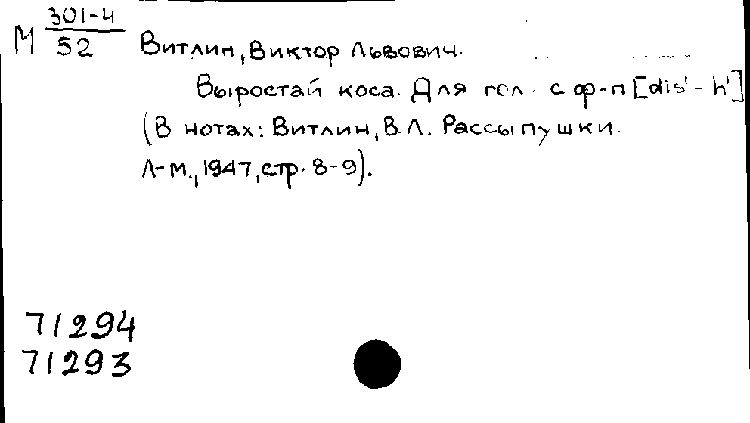 М 301-4
52
Витлин, Виктор Львович.
Выростай коса. Для гол. с ф-п [dis' - h']
(В нотах: Витлин, В.Л. Рассыпушки.
Л-М., 1947, стр. 8-9).
71294
71293